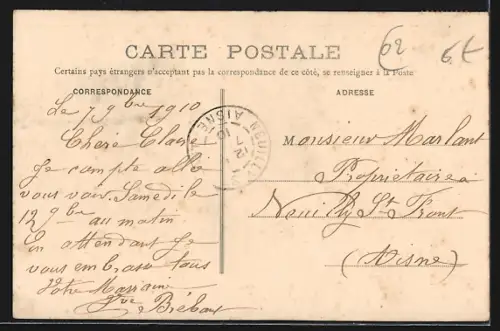 CARTE POSTALE
62
6 t
Certains pays étrangers n'acceptant pas la correspondance de ce côté, se renseigner à la Poste
CORRESPONDANCE
Le 7 9bre 1910
Chere Claire
Je compte allé
vous voir Samedi le
12 9bre au matin
En attendant Je
vous embrasse tous
Votre Marraine
Vve
ADRESSE
Monsieur Marlant
Propriétaire à
Neuilly St Front
(Aisne)
NEUILLY
AISNE